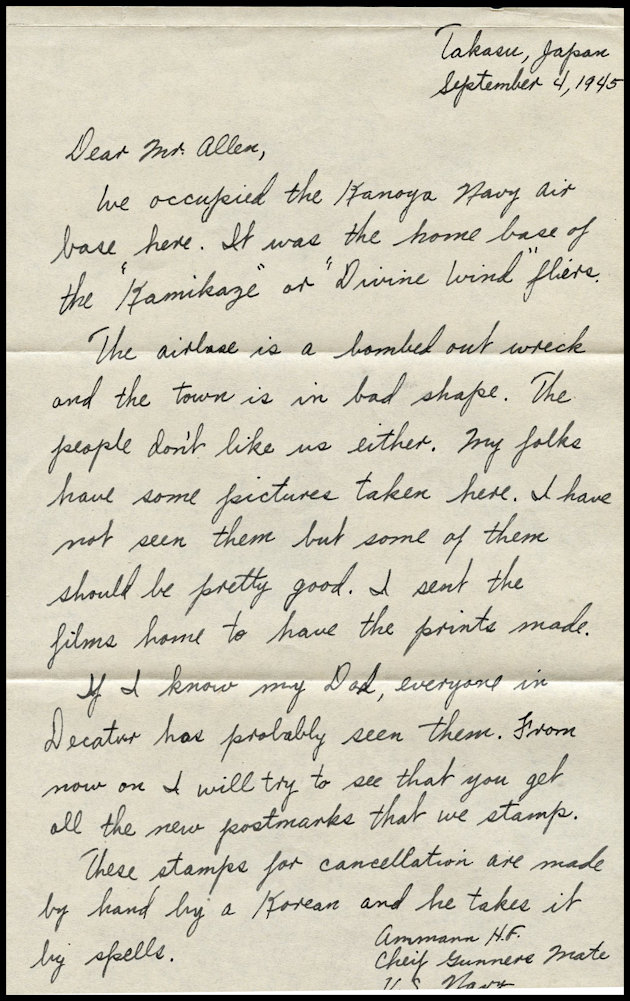 Takasu, Japan
September 4, 1945
Dear Mr. Allen,
We occupied the Kanoya Navy air
base here. It was the home base of
the "Kamikaze" or "Divine Wind" fliers.
The airbase is a bombed out wreck
and the town is in bad shape. The
people don't like us either. My folks
have some pictures taken here. I have
not seen them but some of them
should be pretty good. I sent the
films home to have the prints made.
If I know my Dad, everyone in
Decatur has probably seen them. From
now on I will try to see that you get
all the new postmarks that we stamp.
These stamps for cancellation are made
by hand by a Korean and he takes it
by spells.
Ammann H.F.
Cheif Gunners Mate
U.S. Navy